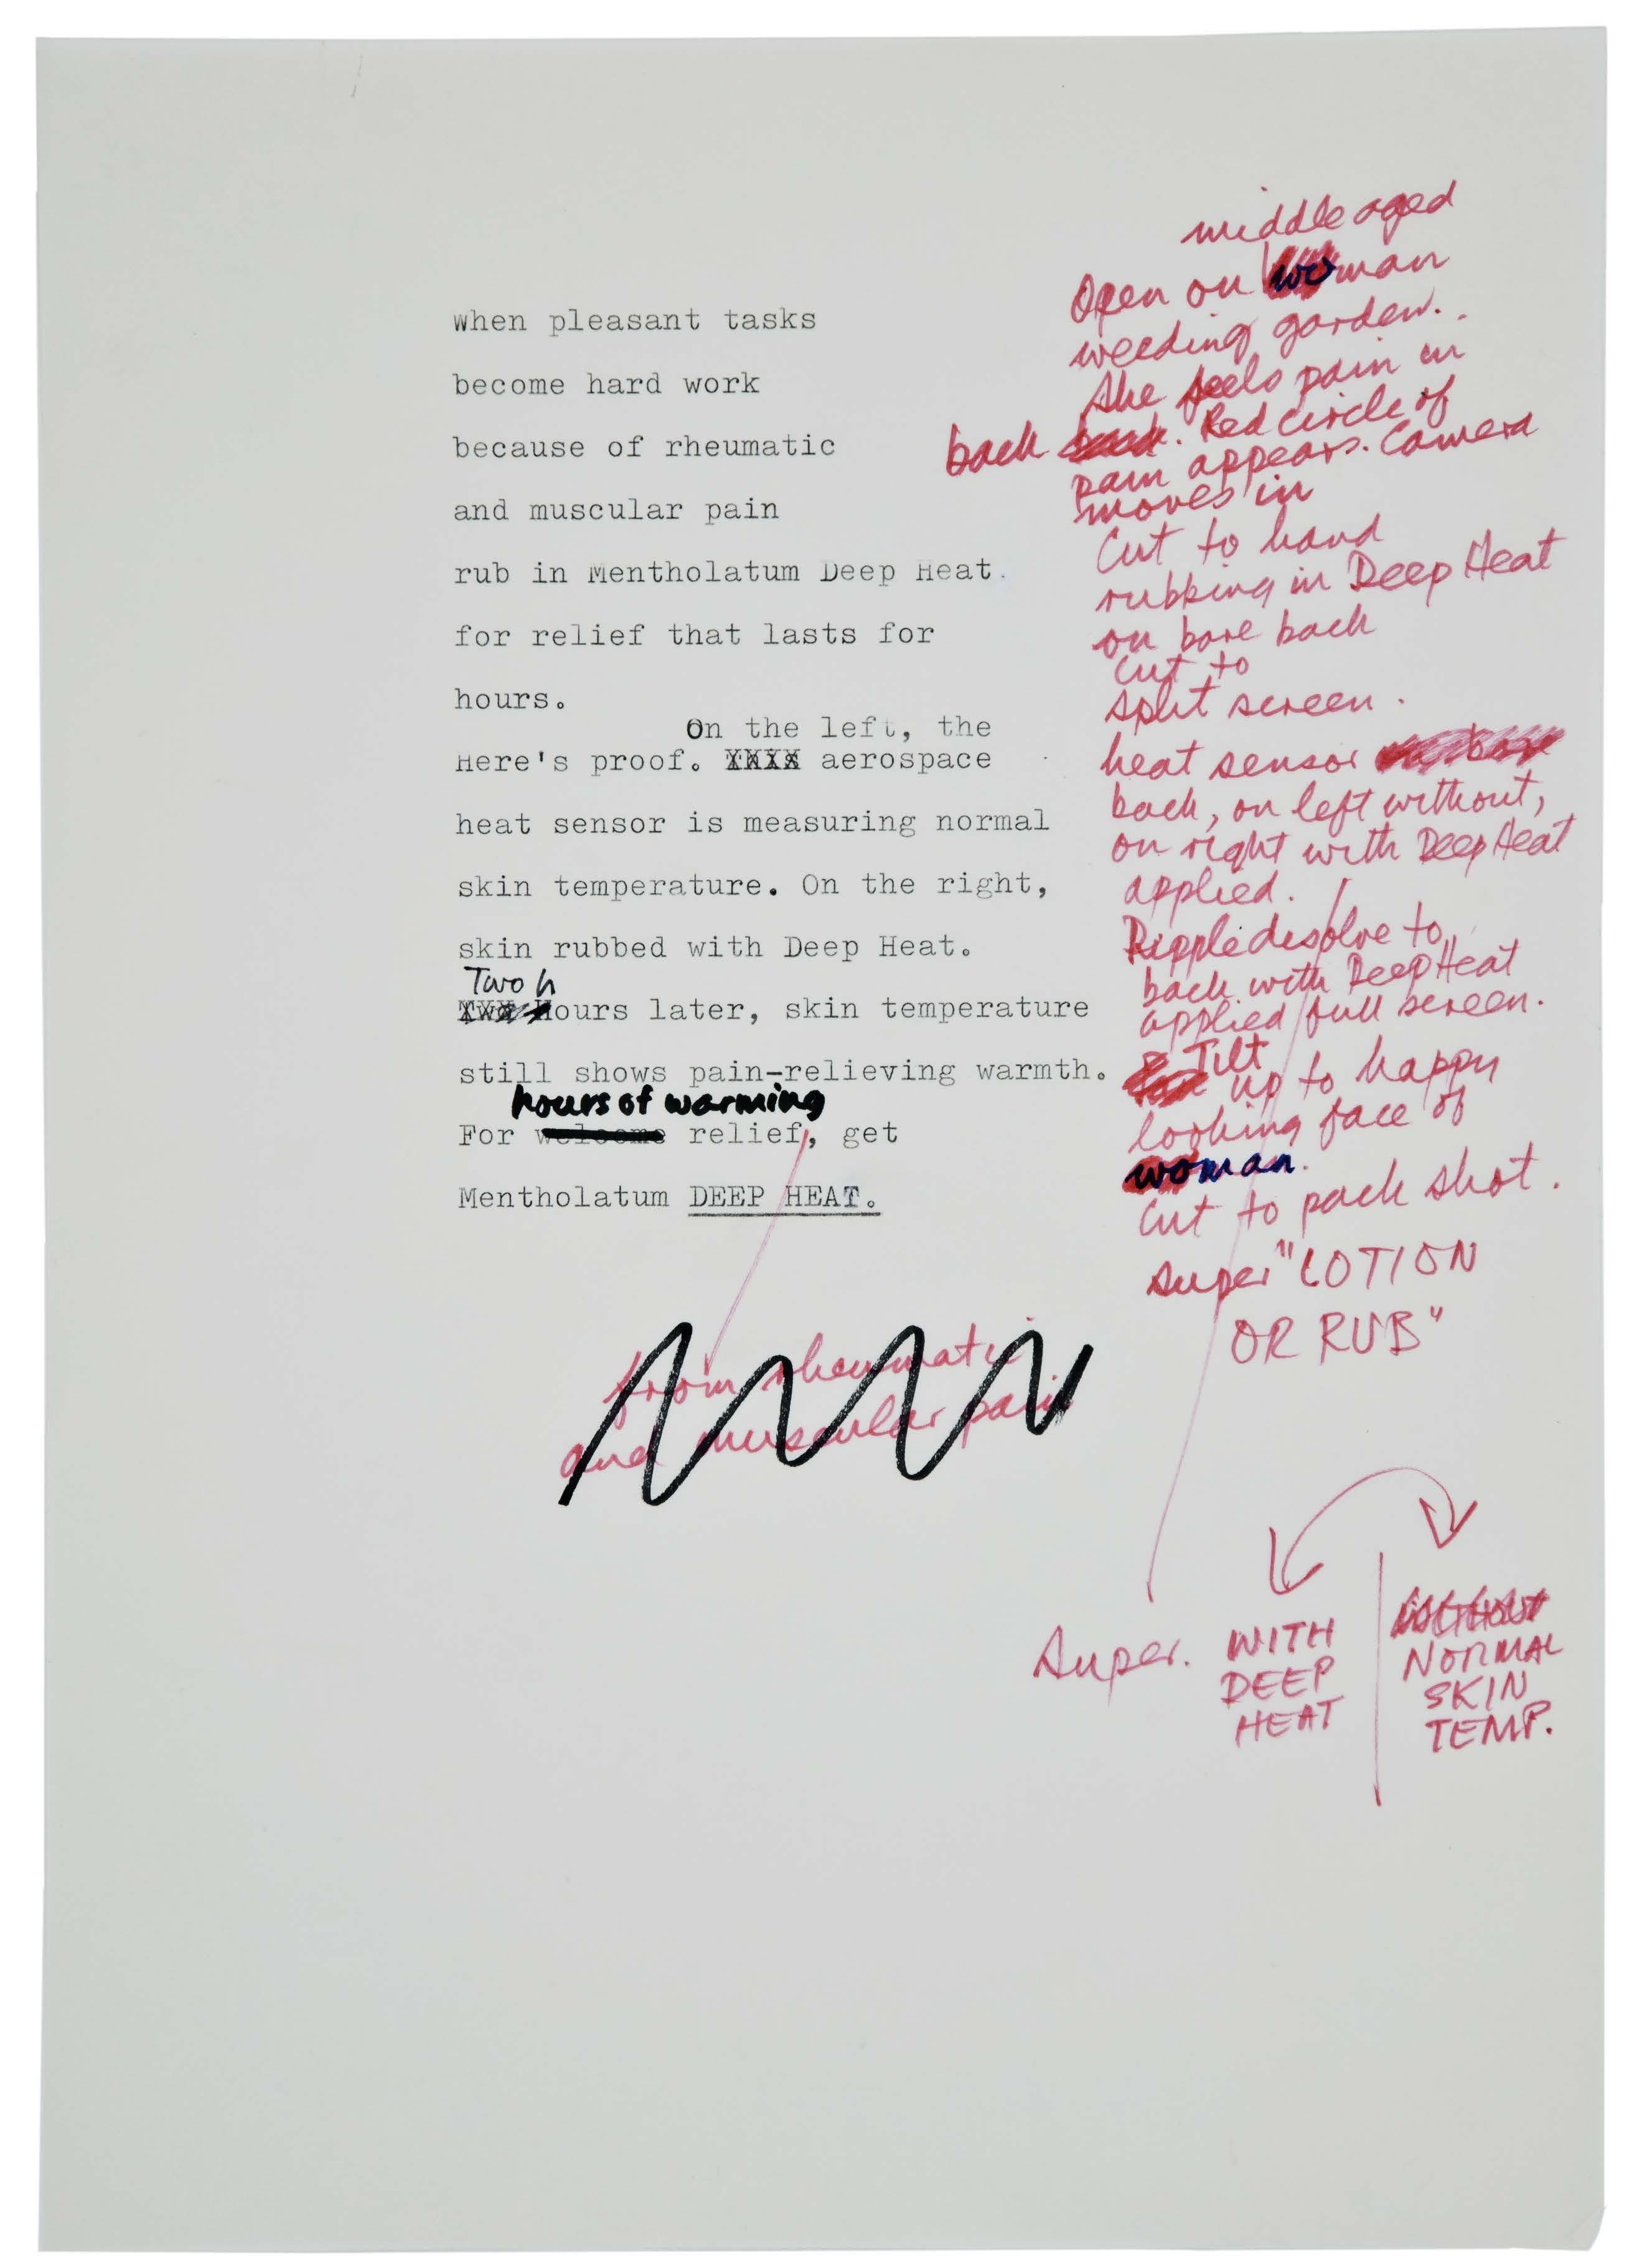 When pleasant tasks
become hard work
because of rheumatic
and muscular pain
rub in Mentholatum Deep Heat.
for relief that lasts for
hours.
On the left, the
Here's proof. XXXX aerospace
heat sensor is measuring normal
skin temperature. On the right,
skin rubbed with Deep Heat.
Two h
ours later, skin temperature
still shows pain-relieving warmth.
hours of warming
For welcome relief, get
Mentholatum DEEP HEAT.
from rheumatic
and muscular pain
middle aged
Open on woman
weeding garden.
She feels pain in
back. Red circle of
pain appears. Camera
moves in
Cut to hand
rubbing in Deep Heat
on bare back
Cut to
split screen.
heat sensor
back, on left without,
on right with Deep Heat
applied.
Ripple disolve to
back with Deep Heat
applied full screen.
Tilt
up to happy
looking face of
woman.
Cut to pack shot.
Super "LOTION
OR RUB"
Super. WITH
DEEP
HEAT
Without
NORMAL
SKIN
TEMP.